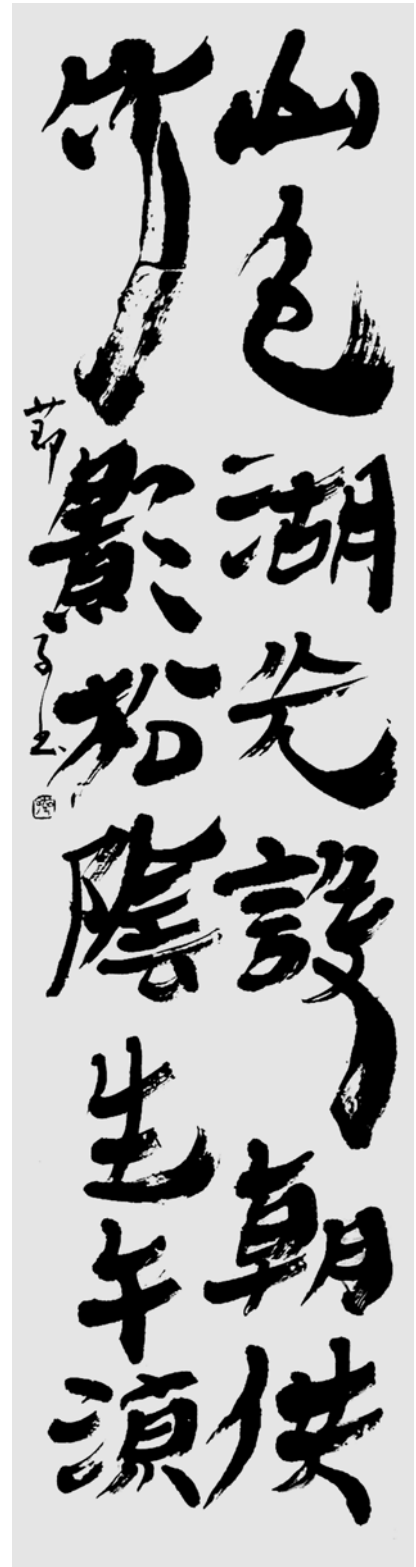 山色湖光設朝供
竹影松陰生午涼
節子書